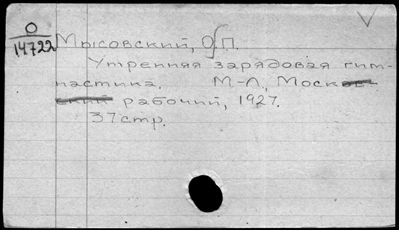 О
14722
Мысовский, О.П.
Утренняя зарядовая гим-
настика. М-Л., Москов-
ский рабочий, 1927.
37 стр.